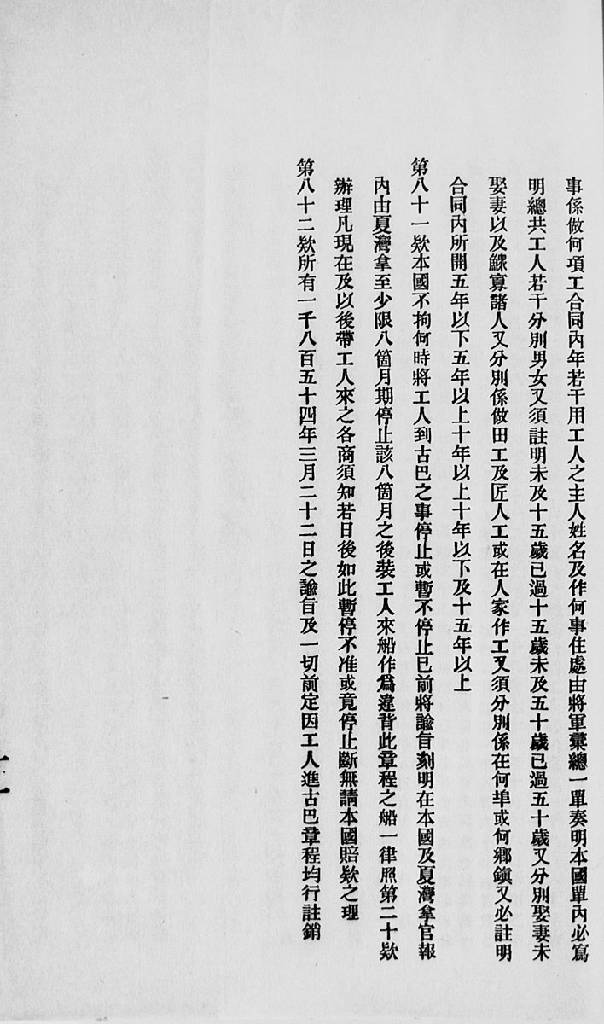 事係做何項工合同內年若干用工人之主人姓名及作何事住處由將軍彙總一單奏明本國單內必寫
明總共工人若干分別男女又須註明未及十五歲已過十五歲未及五十歲已過五十歲又分別娶妻未
娶妻以及鰥寡諸人又分別係做田工及匠人工或在人家作工又須分別係在何埠或何鄉鎮又必註明
合同內所開五年以下五年以上十年以上十年以下及十五年以上
第八十一欵本國不拘何時將工人到古巴之事停止或暫不停止已前將諭旨刻明在本國及夏灣拿官報
內由夏灣拿至少限八箇月期停止該八箇月之後裝工人來船作爲違背此章程之船一律照第二十欵
辦理凡現在及以後帶工人來之各商須知若日後如此暫停不准或竟停止斷無請本國賠欵之理
第八十二欵所有一千八百五十四年三月二十二日之諭旨及一切前定因工人進古巴章程均行註銷